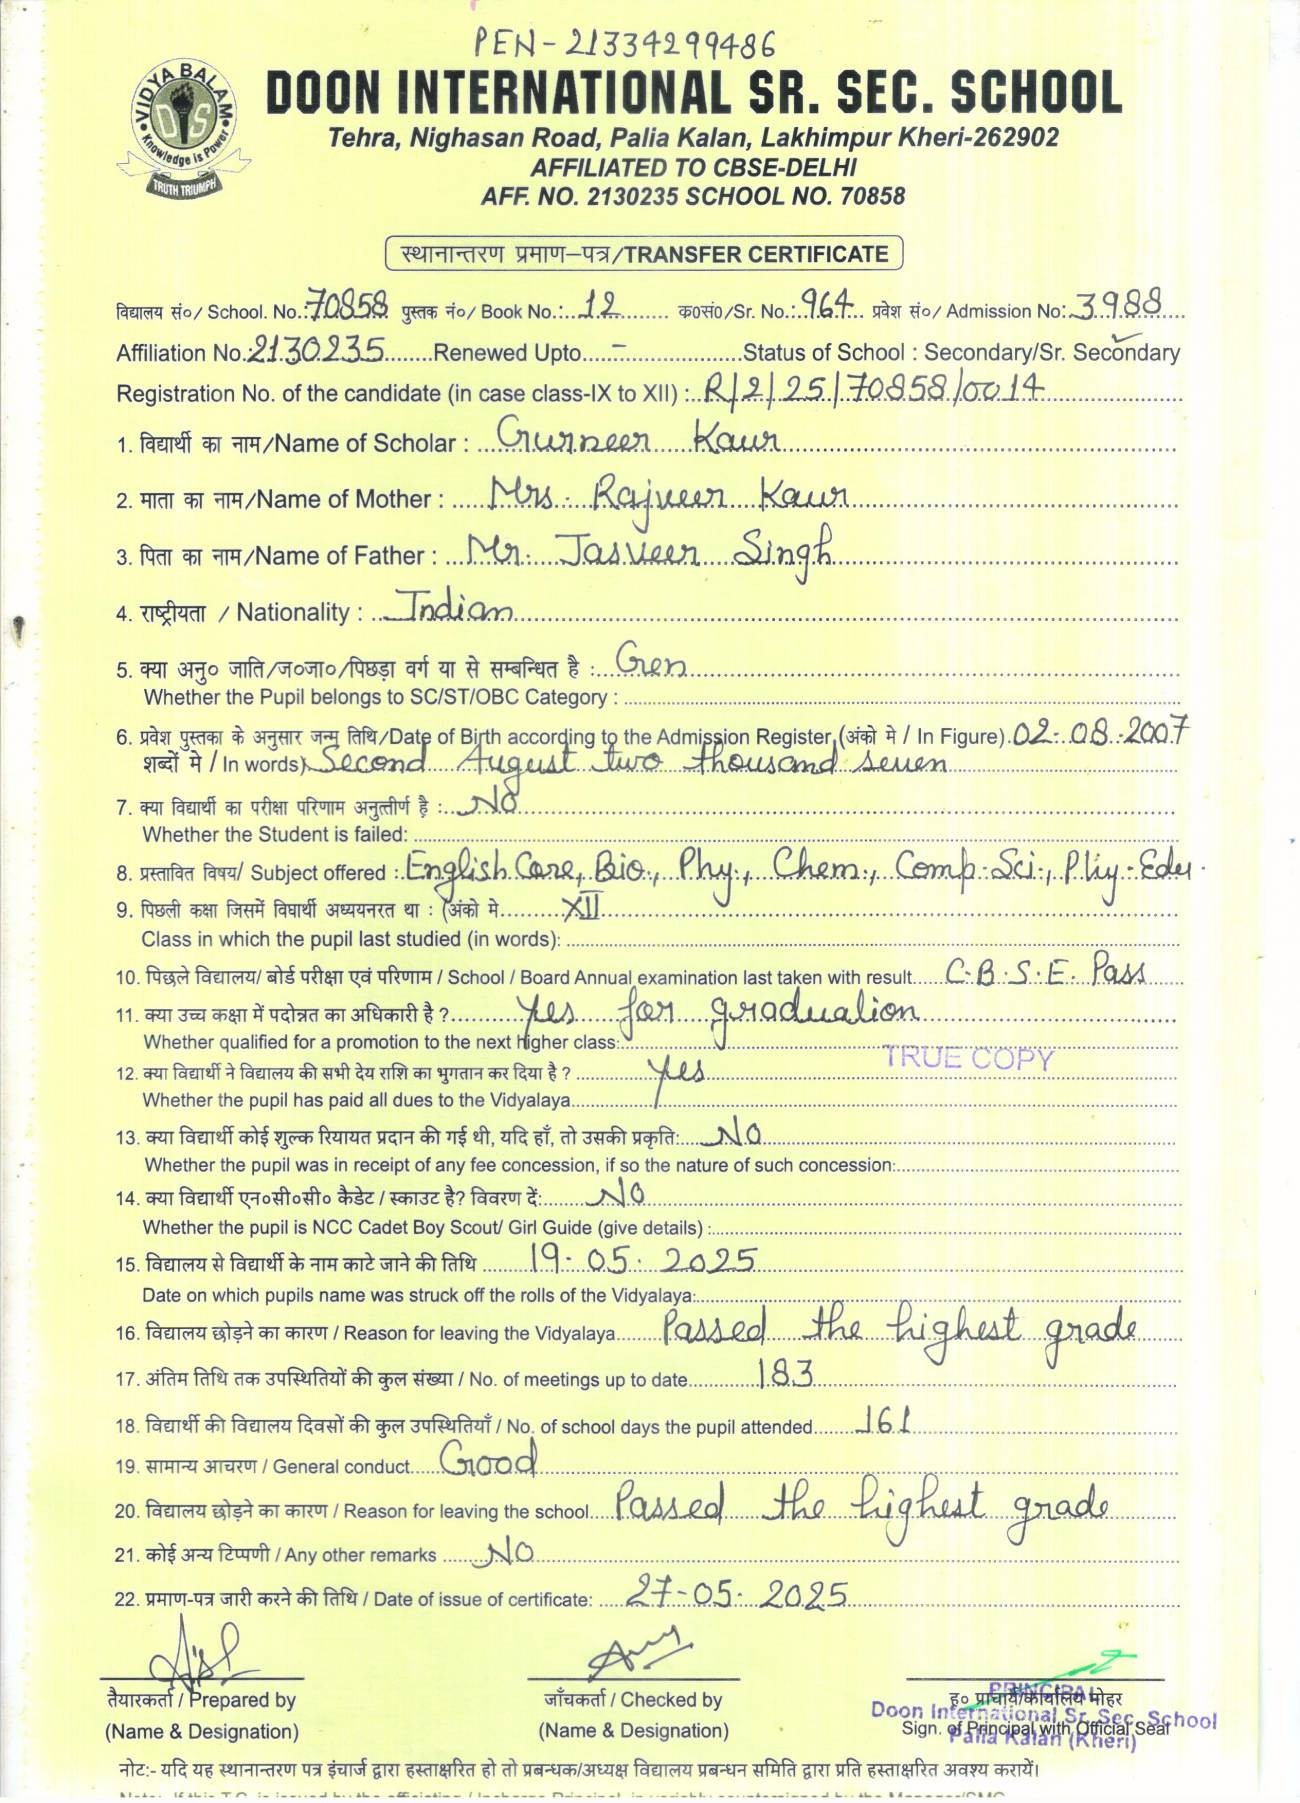 PEN-21334299486
VIDYA BALAM
DIS
Knowledge is Power
TRUTH TRIUMPH
DOON INTERNATIONAL SR. SEC. SCHOOL
Tehra, Nighasan Road, Palia Kalan, Lakhimpur Kheri-262902
AFFILIATED TO CBSE-DELHI
AFF. NO. 2130235 SCHOOL NO. 70858
स्थानान्तरण प्रमाण–पत्र/TRANSFER CERTIFICATE
विद्यालय सं०/ School. No.:70858 पुस्तक नं०/ Book No.:12 क०सं०/Sr. No.:964 प्रवेश सं०/ Admission No:3988
Affiliation No.:2130235 Renewed Upto - Status of School : Secondary/Sr. Secondary
Registration No. of the candidate (in case class-IX to XII) : R/2/25/70858/0014
1. विद्यार्थी का नाम/Name of Scholar : Gurneer Kaur
2. माता का नाम/Name of Mother : Mrs. Rajveer Kaur
3. पिता का नाम/Name of Father : Mr. Jasveer Singh
4. राष्ट्रीयता / Nationality : Indian
5. क्या अनु० जाति/ज०जा०/पिछड़ा वर्ग या से सम्बन्धित है : Gen
Whether the Pupil belongs to SC/ST/OBC Category :
6. प्रवेश पुस्तका के अनुसार जन्म तिथि/Date of Birth according to the Admission Register (अंको मे / In Figure) 02-08-2007
शब्दों मे / In words) Second August two thousand seven
7. क्या विद्यार्थी का परीक्षा परिणाम अनुत्तीर्ण है : No
Whether the Student is failed:
8. प्रस्तावित विषय/ Subject offered : English Core, Bio., Phy., Chem., Comp. Sci., Phy. Edu.
9. पिछली कक्षा जिसमें विघार्थी अध्ययनरत था : (अंको मे XII
Class in which the pupil last studied (in words):
10. पिछले विद्यालय/ बोर्ड परीक्षा एवं परिणाम / School / Board Annual examination last taken with result C.B.S.E. Pass
11. क्या उच्च कक्षा में पदोन्नत का अधिकारी है ? Yes for graduation
Whether qualified for a promotion to the next higher class:
TRUE COPY
12. क्या विद्यार्थी ने विद्यालय की सभी देय राशि का भुगतान कर दिया है ? Yes
Whether the pupil has paid all dues to the Vidyalaya
13. क्या विद्यार्थी कोई शुल्क रियायत प्रदान की गई थी, यदि हाँ, तो उसकी प्रकृति: No
Whether the pupil was in receipt of any fee concession, if so the nature of such concession:
14. क्या विद्यार्थी एन०सी०सी० कैडेट / स्काउट है? विवरण दें: No
Whether the pupil is NCC Cadet Boy Scout/ Girl Guide (give details) :
15. विद्यालय से विद्यार्थी के नाम काटे जाने की तिथि 19.05.2025
Date on which pupils name was struck off the rolls of the Vidyalaya:
16. विद्यालय छोड़ने का कारण / Reason for leaving the Vidyalaya Passed the highest grade
17. अंतिम तिथि तक उपस्थितियों की कुल संख्या / No. of meetings up to date 183
18. विद्यार्थी की विद्यालय दिवसों की कुल उपस्थितियाँ / No. of school days the pupil attended 161
19. सामान्य आचरण / General conduct Good
20. विद्यालय छोड़ने का कारण / Reason for leaving the school Passed the highest grade
21. कोई अन्य टिप्पणी / Any other remarks No
22. प्रमाण-पत्र जारी करने की तिथि / Date of issue of certificate: 27-05-2025
तैयारकर्ता / Prepared by जाँचकर्ता / Checked by ह० प्राचार्य/कार्यालय मोहर
(Name & Designation) (Name & Designation) Sign. of Principal with Official Seal
PRINCIPAL
Doon International Sr. Sec. School
Palia Kalan (Kheri)
नोट:- यदि यह स्थानान्तरण पत्र इंचार्ज द्वारा हस्ताक्षरित हो तो प्रबन्धक/अध्यक्ष विद्यालय प्रबन्धन समिति द्वारा प्रति हस्ताक्षरित अवश्य करायें।